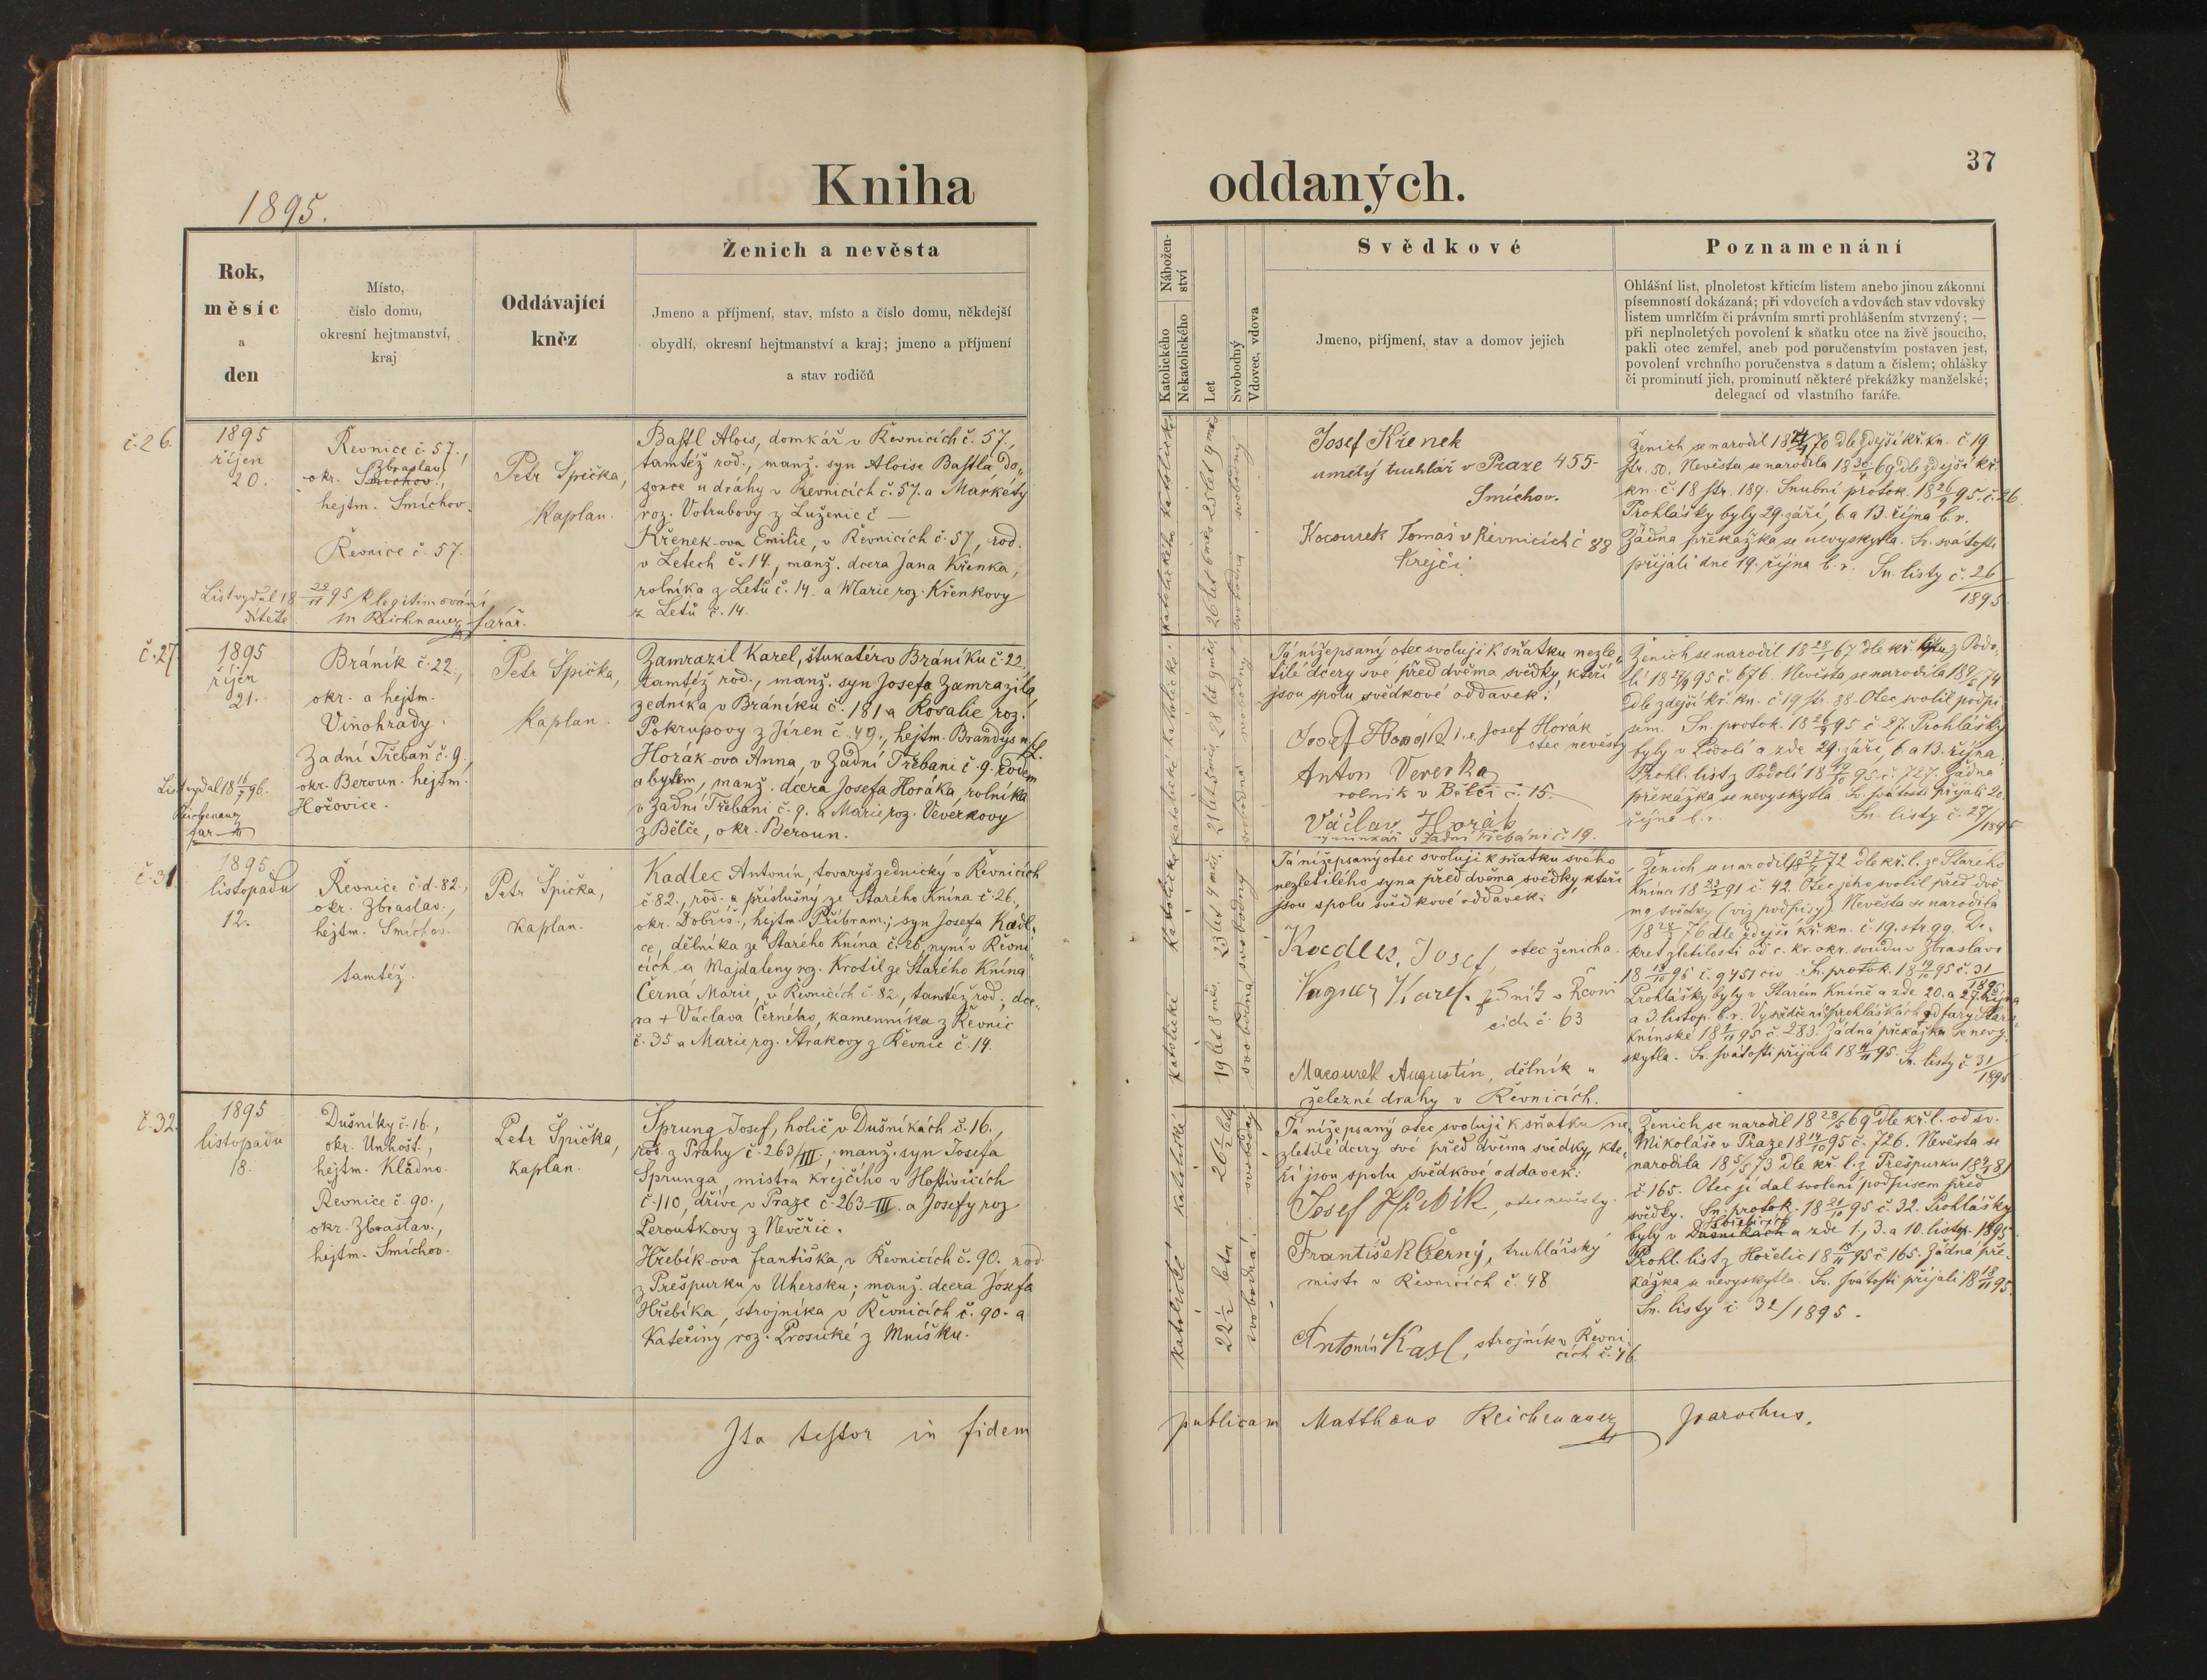 1895.
Kniha
Rok,
měsíc
a
den
Místo,
číslo domu,
okresní hejtmanství,
kraj
Oddávající
kněz
Ženich a nevěsta
Jmeno a příjmení, stav, místo a číslo domu, někdejší
obydlí, okresní hejtmanství a kraj; jmeno a příjmení
a stav rodičů
č. 26.
1895
říjen
20.
Řevnice č. 57.,
Zbraslav,
okr. Smíchov.,
hejtm. Smíchov.
Řevnice č. 57.
Petr Špička,
Kaplan.
Bastl Alois, domkář v Řevnicích č. 57.,
tamtéž rod., manž. syn Aloise Bastla do„
zorce u dráhy v Řevnicích č. 57. a Markéty
roz. Votrubovy z Luženic č —
Křenek-ova Emilie, v Řevnicích č. 57, rod.
v Letech č. 14., manž. dcera Jana Křenka,
rolníka z Letů č. 14. a Marie roz. Křenkovy
z Letů č. 14.
List vydal 18 28/11 95 k legitimování
dítěte M Reichenauer farář.
č. 27
1895
říjen
21.
Bráník č. 22.,
okr. a hejtm.
Vinohrady.
Zadní Třebaň č. 9.,
okr. Beroun. hejtm.
Hořovice.
Petr Špička,
Kaplan.
Zamrazil Karel, štukatér v Bráníku č. 22.
tamtéž rod., manž. syn Josefa Zamrazila,
zedníka v Bráníku č. 181 a Rosalie roz.
Pokrupovy z Jíren č. 49., hejtm. Brandýs n/L.
Horák-ova Anna, v Zadní Třebani č. 9. rodem
a bytem, manž. dcera Josefa Horáka, rolníka
v Zadní Třebani č. 9. a Marie roz. Veverkovy
z Bělče, okr. Beroun.
List vydal 18 16/7 96.
Reichenauer
far
č. 31
1895
listopadu
12.
Řevnice č. d. 82.,
okr. Zbraslav.,
hejtm. Smíchov.
tamtéž.
Petr Špička,
Kaplan.
Kadlec Antonín, tovaryš zednický v Řevnicích
č. 82., rod. a příslušný ze Starého Knína č. 26.,
okr. Dobříš., hejtm. Příbram.; syn Josefa Kadl„
ce, dělníka ze Starého Knína č. 26, nyní v Řevni„
cích a Majdaleny roz. Krotil ze Starého Knína
Černá Marie, v Řevnicích č. 82, tamtéž rod.; dce„
ra + Václava Černého, kamenníka z Řevnic
č. 35 a Marie roz. Strakovy z Řevnic č. 14.
č. 32.
1895
listopadu
18.
Dušníky č. 16.,
okr. Unhošt.,
hejtm. Kladno.
Řevnice č. 90.,
okr. Zbraslav.,
hejtm. Smíchov.
Petr Špička,
Kaplan.
Sprung Josef, holič v Dušníkách č. 16.,
rod. z Prahy č. 263/III; manž. syn Josefa
Sprunga, mistra krejčího v Hostivicích
č. 110, dříve v Praze č. 263-III. a Josefy roz
Peroutkovy z Nevěřic.
Hřebík-ova Františka, v Řevnicích č. 90. rod.
z Prešpurku v Uhersku; manž. dcera Josefa
Hřebíka, strojníka v Řevnicích č. 90. a
Kateřiny roz. Prosické z Mníšku.
Ita testor in fidem
37
oddaných.
Nábožen-
ství
Katolického
Nekatolického
Let
Svobodný
Vdovec, vdova
Svědkové
Jmeno, příjmení, stav a domov jejich
Poznamenání
Ohlášní list, plnoletost křticím listem anebo jinou zákonní
písemností dokázaná; při vdovcích a vdovách stav vdovský
listem umrlčím či právním smrti prohlášením stvrzený; —
při neplnoletých povolení k sňatku otce na živě jsoucího,
pakli otec zemřel, aneb pod poručenstvím postaven jest,
povolení vrchního poručenstva s datum a číslem; ohlášky
či prominutí jich, prominutí některé překážky manželské;
delegací od vlastního faráře.
Katolické
Katolické
25 let 9 měs
26 let 6 měs
svobodný
svobodná
Josef Křenek
umělý truhlář v Praze 455-
Smíchov.
Kocourek Tomáš v Řevnicích č 88
Krejčí.
Ženich se narodil 18 /70 dle zdejší kř. kn. č. 19
str. 50. Nevěsta se narodila 18 30/4 69 dle zdejší kř.
kn. č. 18 str. 189. Snubní protok. 18 26/9 95. č. 26.
Prohlášky byly 29. září, 6. a 13. října b. r.
Žádná překážka se nevyskytla. Sv. svátosti
přijali dne 19. října b. r. Sn. listy č. 26/1895
katolické
katolické
28 let 9 měs
21 let 5 měs.
svobodný
svobodná
Já nížepsaný otec svoluji k sňatku nezle„
tilé dcery své před dvěma svědky, kteří
jsou spolu svědkové oddavek:
Josef Horák i. e. Josef Horák
otec nevěsty
Anton Veverka
rolník v Bělči č. 15.
Václav Horák
výminkář v Zadní Třebani č. 19.
Ženich se narodil 18 28/1 67 dle kř. listu z Podo„
lí 18 27/9 95 č. 676. Nevěsta se narodila 18 /5 74
dle zdejší kř. kn. č 19 str. 88. Otec svolil podpi„
sem. Sn. protok. 18 26/9 95 č. 27. Prohlášky
byly v Podolí a zde 29. září, 6. a 13. října.
Prohl. list z Podolí 18 19/10 95 č. 727. Žádná
překážka se nevyskytla. Sv. svátosti přijali 20.
října b. r. Sn. listy č. 27/1895
Katolické
Katolická
23 let 4 měs.
19 let 8 měs.
svobodný
svobodná
Já nížepsaný otec svoluji k sňatku svého
nezletilého syna před dvěma svědky, kteří
jsou spolu svědkové oddavek:
Kadlec, Josef, otec ženicha.
Vagner Karel. zedník v Řevni
cích č. 63
Macourek Augustin, dělník u
železné drahy v Řevnicích.
Ženich se narodil 18 27/7 72 dle kř. l. ze Starého
Knína 18 23/2 91 č. 42. Otec jeho svolil před dvě„
ma svědky (viz podpisy). Nevěsta se narodila
18 28/2 76 dle zdejší kř. kn. č. 19. str. 99. De„
kret zletilosti od c. kr. okr. soudu v Zbraslavi
18 18/10 95 č. 9451 civ. Sn. protok. 18 19/10 95 č. 31/1895.
Prohlášky byly v Starém Kníně a zde 20. a 27. října
a 3. listop. b. r. Vysvědčení o prohláškách od fary Staro„
knínské 18 /11 95 č. 283. Žádná překážka se nevy„
skytla. Sv. svátosti přijali 18 11/11 95. Sn. listy č. 31/1895
katolické
katolické
26 1/2 lety
22 1/2 leta
svobodný
svobodná
Já nížepsaný otec svoluji k sňatku ne„
zletilé dcery své před dvěma svědky, kte„
ří jsou spolu svědkové oddavek:
Josef Hřebík, otec nevěsty.
František Černý, truhlářský
mistr v Řevnicích č. 48
Antonín Kasl, strojník v Řevni
cích č. 46.
Ženich se narodil 18 28/5 69 dle kř. l. od sv.
Mikoláše v Praze 18 14/10 95 č. 726. Nevěsta se
narodila 18 5/5 73 dle kř. l. z Prešpurku 18 81
č. 165. Otec jí dal svolení podpisem před
svědky. Sn. protok. 18 21/10 95 č. 32. Prohlášky
byly v Dušníkách a zde 1., 3. a 10. listop. 1895
Prohl. list z Hořelic 18 /11 95 č 165. Žádná pře„
kážka se nevyskytla. Sv. svátosti přijali 18 18/11 95.
Sn. listy č. 32/1895.
publicam Matthaeus Reichenauer parochus.